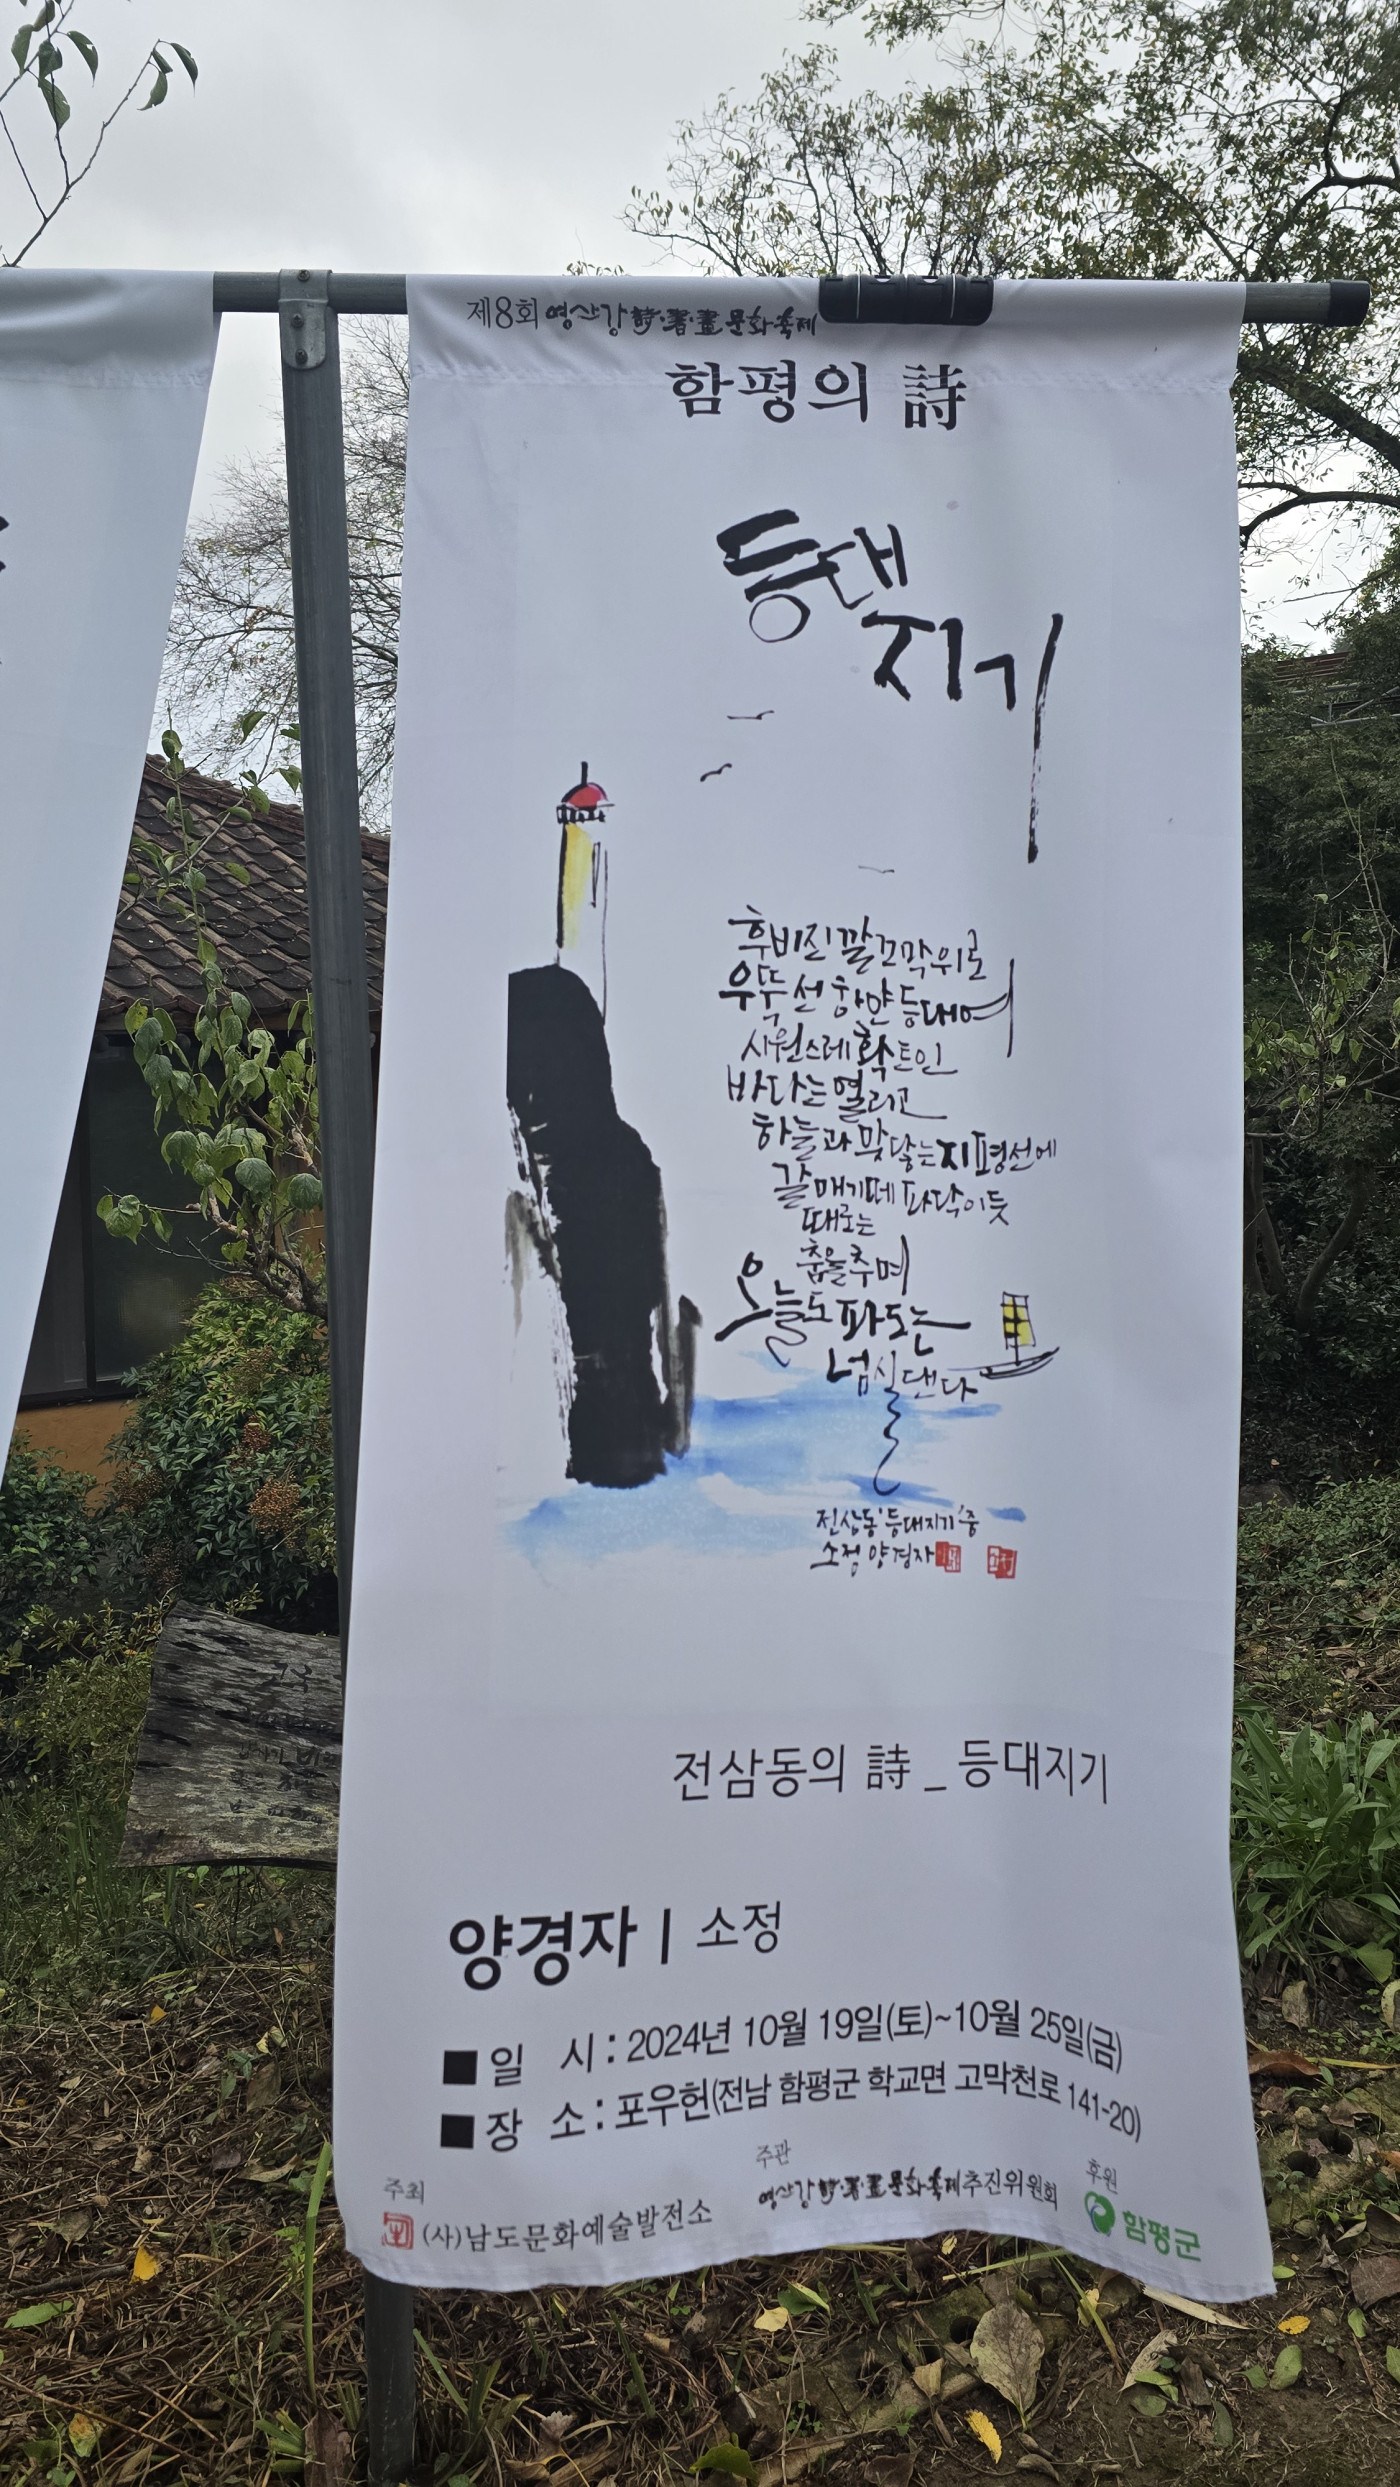 제8회 영산강 詩·書·畫 문화축제
함평의 詩
등대
지기
후비진 깔끄막 위로
우뚝 선 하얀 등대여
시원스레 확 트인
바다는 열리고
하늘과 맞닿는 지평선에
갈매기떼 파닥이듯
때로는
춤을 추며
오늘도 파도는
넘실댄다
전삼동 '등대지기' 중
소정 양경자
전삼동의 詩 _ 등대지기
양경자 | 소정
■ 일 시 : 2024년 10월 19일(토)~10월 25일(금)
■ 장 소 : 포우헌(전남 함평군 학교면 고막천로 141-20)
주최
(사)남도문화예술발전소
주관
영산강 詩·書·畫 문화축제추진위원회
후원
함평군